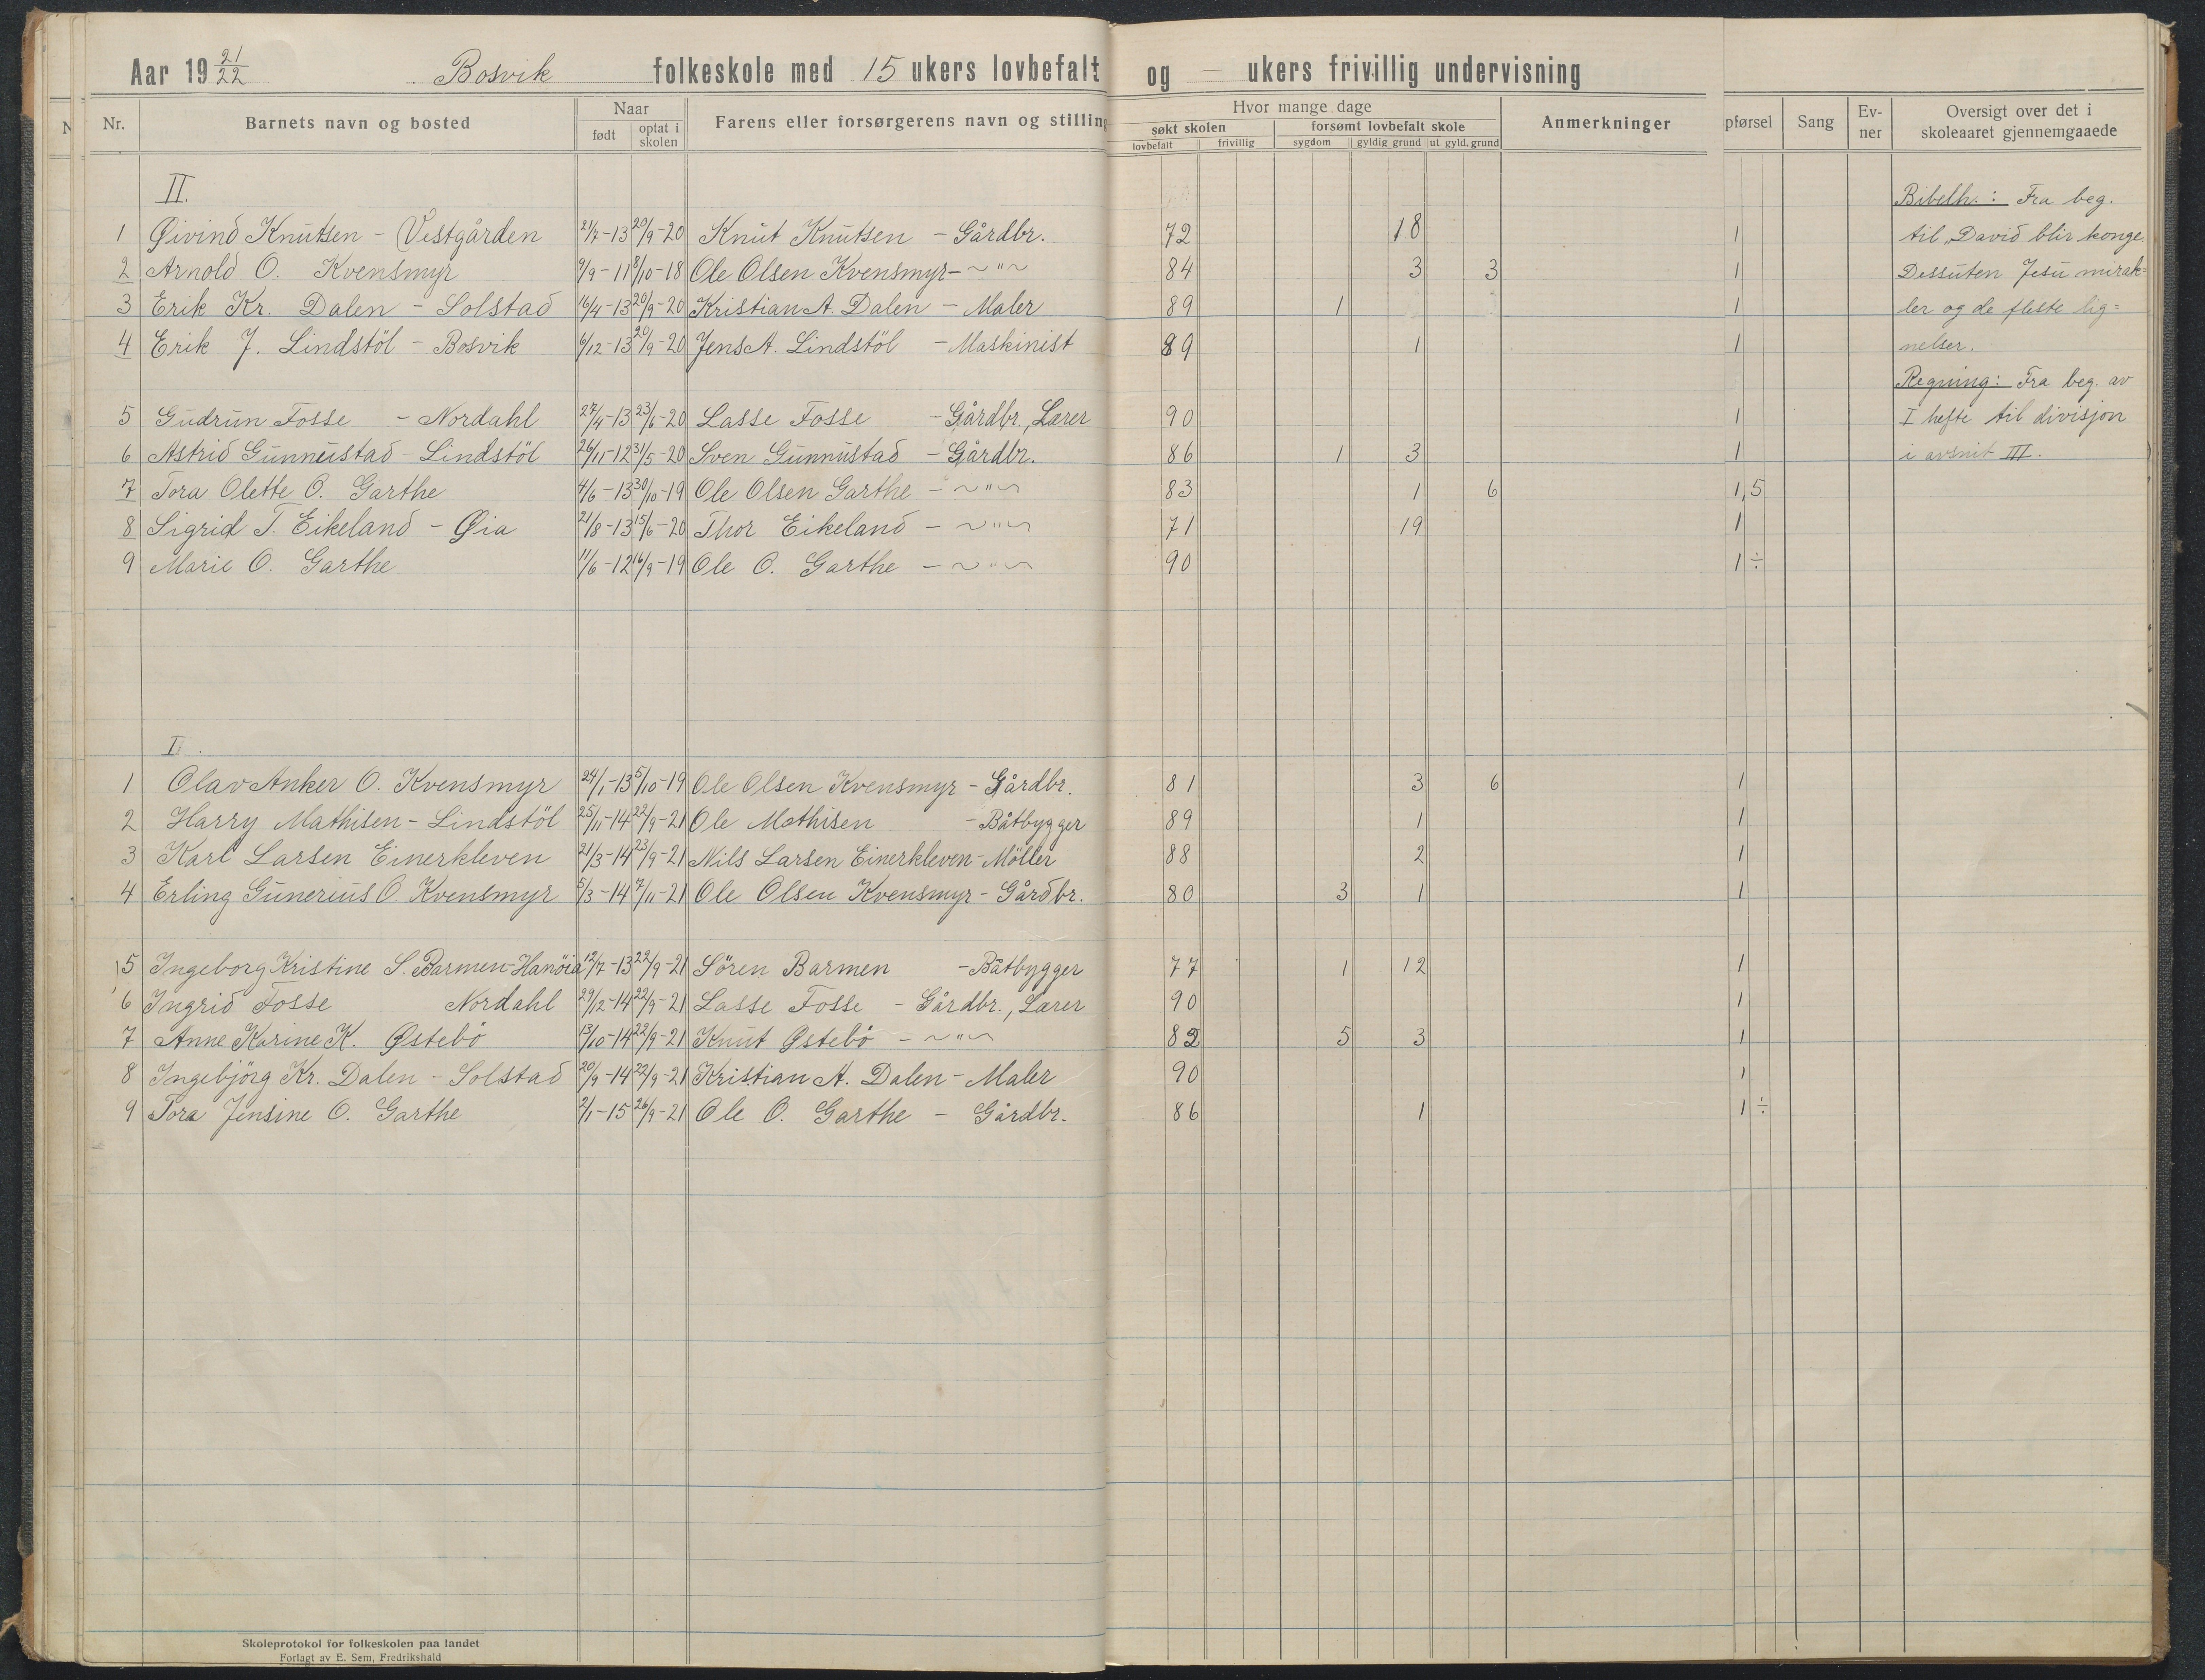 Aar 19 21/22 Bosvik folkeskole med 15 ukers lovbefalt og — ukers frivillig undervisning
Nr. Barnets navn og bosted Naar født optat i skolen Farens eller forsørgerens navn og stilling Hvor mange dage søkt skolen lovbefalt frivillig forsømt lovbefalt skole sygdom gyldig grund ut gyld. grund Anmerkninger pførsel Sang Evner Oversigt over det i skoleaaret gjennemgaaede
II. Bibelh.: Fra beg.
1 Øivind Knutsen - Vestgården 21/7-13 20/9-20 Knut Knutsen - Gårdbr. 72 18 1 til „David blir konge.
2 Arnold O. Kvensmyr 9/9-11 8/10-18 Ole Olsen Kvensmyr - ~"~ 84 3 3 1 Dessuten Jesu mirak=
3 Erik Kr. Dalen - Solstad 16/4-13 20/9-20 Kristian A. Dalen - Maler 89 1 1 ler og de fleste lig=
4 Erik J. Lindstöl - Bosvik 6/12-13 20/9-20 Jens A. Lindstöl - Maskinist 89 1 1 nelser.
Regning: Fra beg. av
5 Gudrun Fosse - Nordahl 27/4-13 23/6-20 Lasse Fosse - Gårdbr., Lærer 90 1 I hefte til divisjon
6 Astrid Gunnustad - Lindstöl 26/11-12 31/5-20 Sven Gunnustad - Gårdbr. 86 1 3 1 i avsnit III.
7 Tora Olette O. Garthe 4/6-13 30/10-19 Ole Olsen Garthe - ~"~ 83 1 6 1,5
8 Sigrid T. Eikeland - Øia 21/8-13 15/6-20 Thor Eikeland - ~"~ 71 19 1
9 Marie O. Garthe 11/6-12 16/9-19 Ole O. Garthe - ~"~ 90 1 ÷
I.
1 Olav Anker O. Kvensmyr 24/1-13 5/10-19 Ole Olsen Kvensmyr - Gårdbr. 81 3 6 1
2 Harry Mathisen - Lindstöl 25/11-14 22/9-21 Ole Mathisen - Båtbygger 89 1 1
3 Karl Larsen Einerkleven 21/3-14 23/9-21 Nils Larsen Einerkleven - Möller 88 2 1
4 Erling Gunerius O. Kvensmyr 5/3-14 7/11-21 Ole Olsen Kvensmyr - Gårdbr. 80 3 1 1
5 Ingeborg Kristine S. Barmen - Hanöia 12/7-13 22/9-21 Sören Barmen - Båtbygger 77 1 12 1
6 Ingrid Fosse Nordahl 29/12-14 22/9-21 Lasse Fosse - Gårdbr., Lærer 90 1
7 Anne Karine K. Østebö 13/10-14 22/9-21 Knut Østebö - ~"~ 82 5 3 1
8 Ingebjörg Kr. Dalen - Solstad 20/9-14 22/9-21 Kristian A. Dalen - Maler 90 1
9 Tora Jensine O. Garthe 2/1-15 26/9-21 Ole O. Garthe - Gårdbr. 86 1 1 ÷
Skoleprotokol for folkeskolen paa landet
Forlagt av E. Sem, Fredrikshald